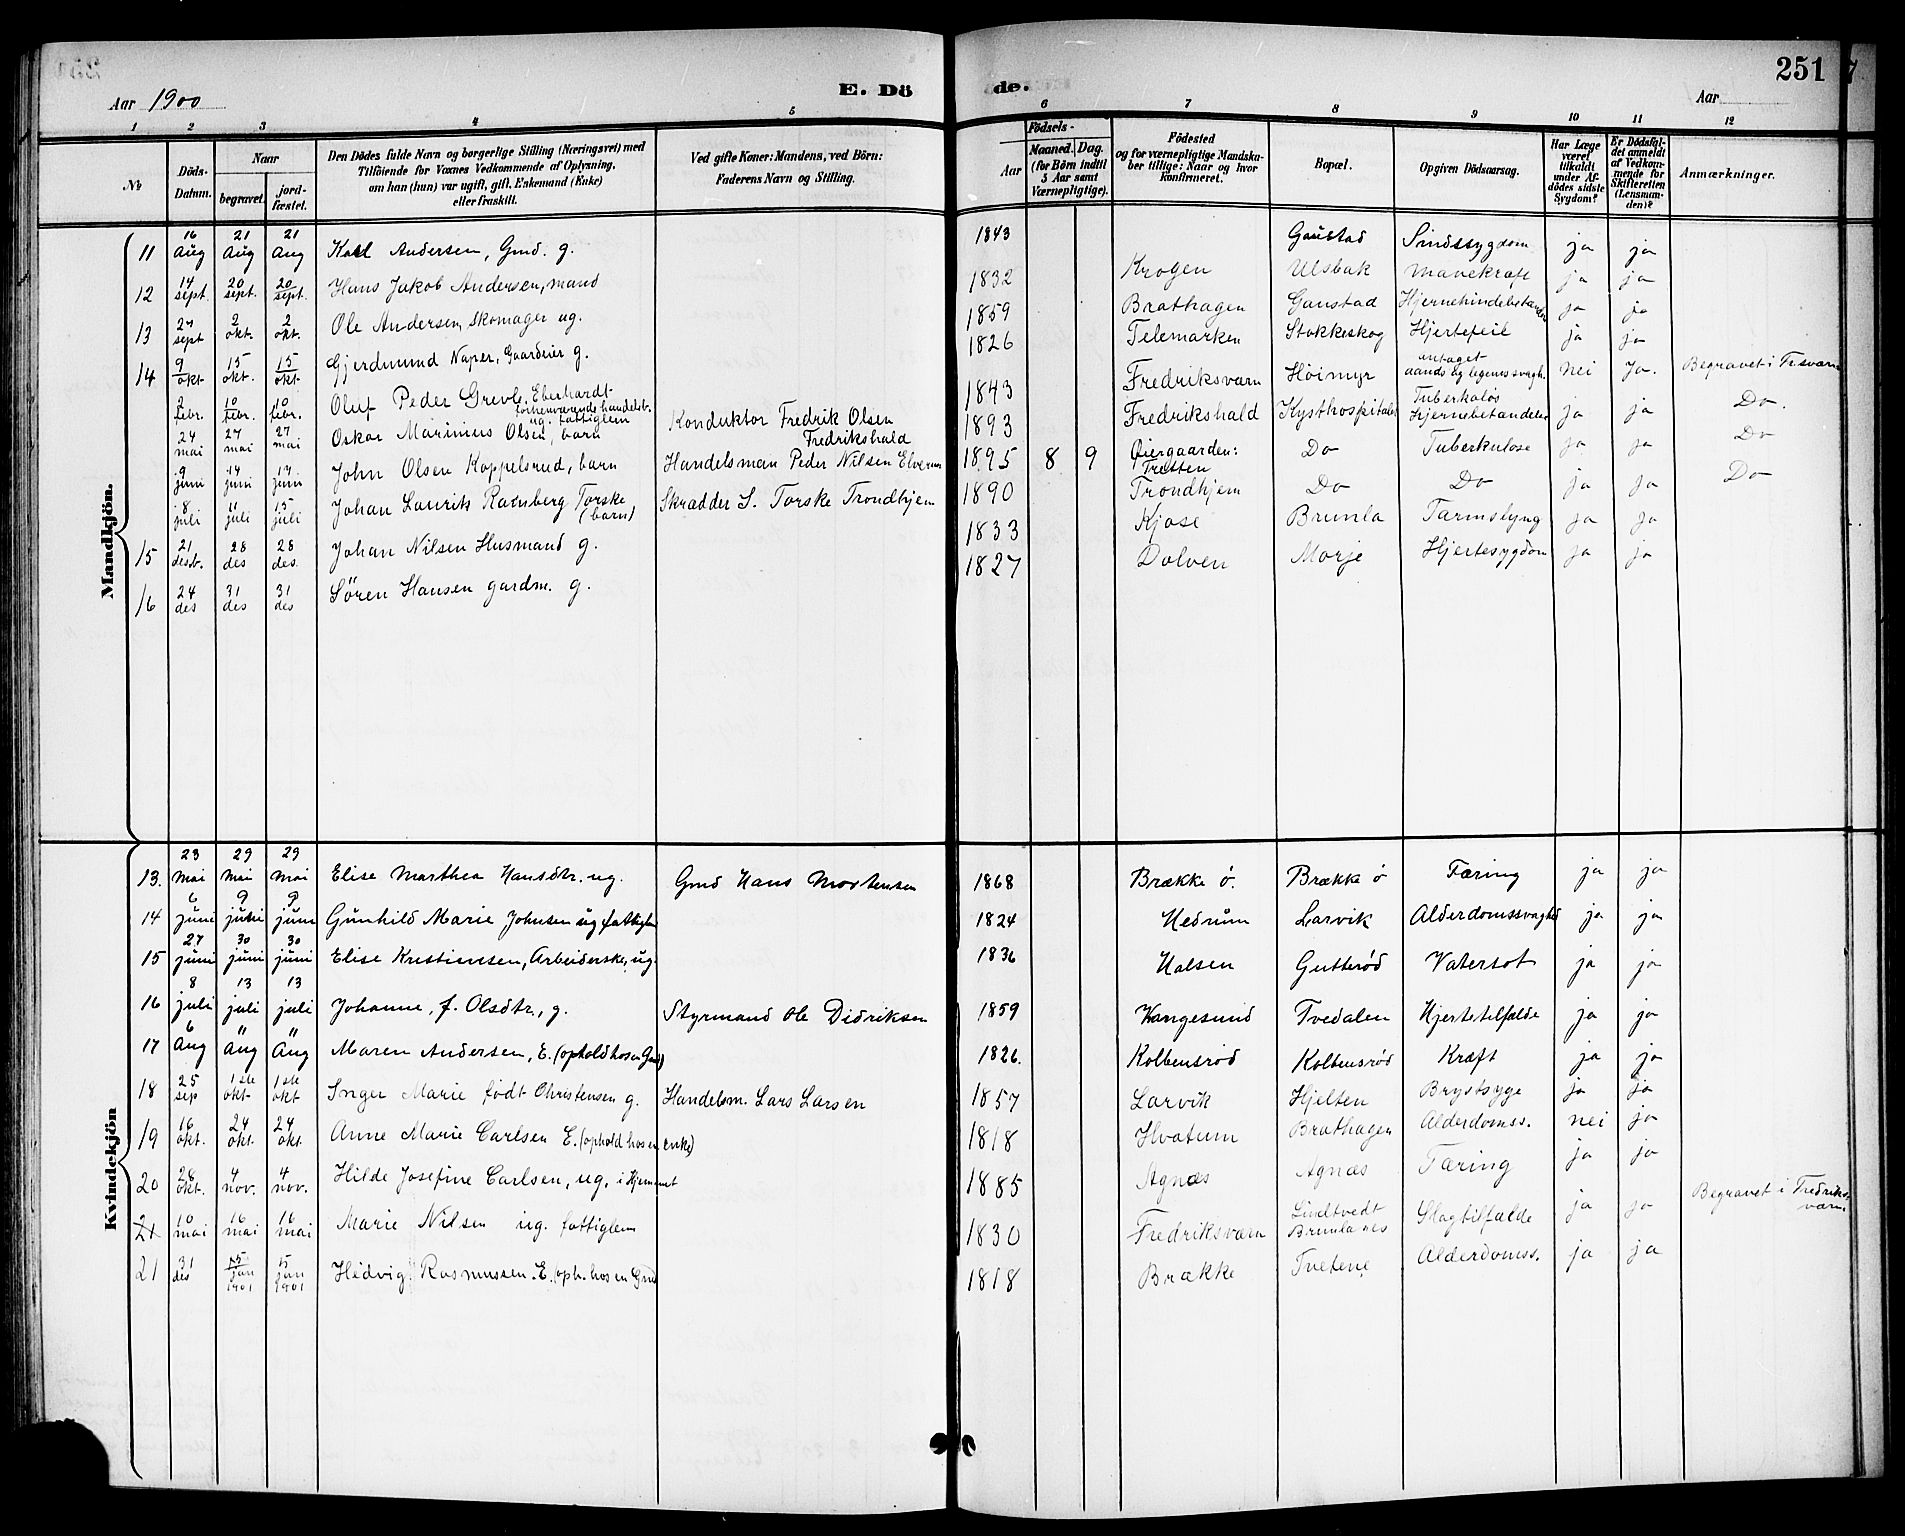 251
Aar 1900
E. Dö
de.
Aar
1 2 3 4 5
6 7 8 9 10 11 12
№
Döds-Datum.
Naar
begravet.
jord-fæstet.
Den Dödes fulde Navn og borgerlige Stilling (Næringsvei) med Tilföiende for Voxnes Vedkommende af Oplysning, om han (hun) var ugift, gift, Enkemand (Enke) eller fraskilt.
Ved gifte Koner: Mandens, ved Börn: Faderens Navn og Stilling.
Födsels-
Aar
Maaned. Dag.
(for Börn indtil 5 Aar samt Værnepligtige).
Födested og for værnepligtige Mandskaber tillige: Naar og hvor konfirmeret.
Bopæl.
Opgiven Dödsaarsag.
Har Læge været tilkaldt under Afdödes sidste Sygdom?
Er Dödsfaldet anmeldt af Vedkommende for Skifteretten (Lensmanden)?
Anmærkninger.
Mandkjön.
11 16 Aug 21 Aug 21 Aug Karl Andersen, Gmd. g. 1843 Gaustad Sindssygdom ja ja
12 14 sept. 20 sept. 20 sept. Hans Jakob Andersen, mand 1832 Krogen Ulsbak Mavekræft ja ja
13 24 sept 2 okt. 2 okt. Ole Andersen, Skomager ug. 1859 Brathagen Gaustad Hjernehindebetændelse ja ja
14 9 okt 15 okt. 15 okt Gjerdmund Naper, Gaardeier g. 1826 Telemarken Stokkeskog Hjertefeil ja ja
2 febr. 10 febr. 10 febr. Oluf Peder Grevle Eberhardt forhenværende handelsb. ug. fattiglem 1843 Fredriksværn Höimyr antaget aands og legemssvagh. nei Ja. Begravet i Fr.sværn
24 mai 27 mai 27 mai Oskar Marinius Olsen, barn Konduktør Fredrik Olsen Fredrikshald 1893 Fredrikshald Kysthospitalet Tuberkuløs Hjernebetændelse ja ja Do.
9 juni 14 juni 14 juni John Olsen Koppelsrud, barn Handelsman Peder Nilsen Elverum 1895 8 9 Øiergaarden: Tretten Do Tuberkulose ja ja Do
8 juli 11 juli 15 juli Johan Laurits Ramberg Torske (barn) Skrædder S. Torske Trondhjem 1890 Trondhjem Do Do ja ja Do
15 21 desb. 28 des 28 des. Johan Nilsen Husmand g. 1833 Kjose Brunla Tarmslyng ja ja
16 24 des 31 des 31 des Sören Hansen gardm. g. 1827 Dolven Morje Hjertesygdom ja ja
Kvindekjön
13. 23 Mai 29 Mai 29 Mai Elise Marthea Hansdtr. ug. Gmd Hans Mortensen 1868 Brække ö. Brække ö Tæring ja ja
14 6 juni 9 juni 9 juni Gunhild Marie Johnsen ug fattiglem 1824 Hedrum Larvik Alderdomssvaghed ja ja
15 27 juni 30 juni 30 juni Elise Kristiensen, Arbeiderske, ug. 1836 Halsen Gutterød Vatersot ja ja
16 8 juli 13 juli 13 juli Johanne, f. Olsdtr., g. Styrmand Ole Didriksen 1859 Vangesund Tvedalen Hjertetilfælde ja ja
17 6 Aug " Aug " Aug Maren Andersen, E. (ophold hos en Gmd) 1826. Kolbensrød Kolbensrød Kræft ja ja
18 25 sep 1ste okt. 1ste okt Inger Marie født Christensen g. Handelsm. Lars Larsen 1857 Larvik Hjelten Brystsyge ja ja
19 16 okt. 24 okt. 24 okt. Anne Marie Carlsen E. (ophold hos en enke) 1818 Hvatum Brathagen Alderdomss. nei ja
20 28 okt. 4 nov. 4 nov. Hilde Josefine Carlsen, ug. i Hjemmet 1885 Agnæs Agnæs Tæring ja ja
21 10 mai 16 mai 16 mai Marie Nilsen ug. fattiglem 1830 Fredriksværn Lindtvedt Brunlanes Slagtilfælde ja ja Begravet i Fredriksværn.
21 31 des 15 jan 1901 15 jan 1901 Hedvig Rasmussen. E. (oph. hos en Gmd 1818 Brække Tvetene Alderdomss. ja ja